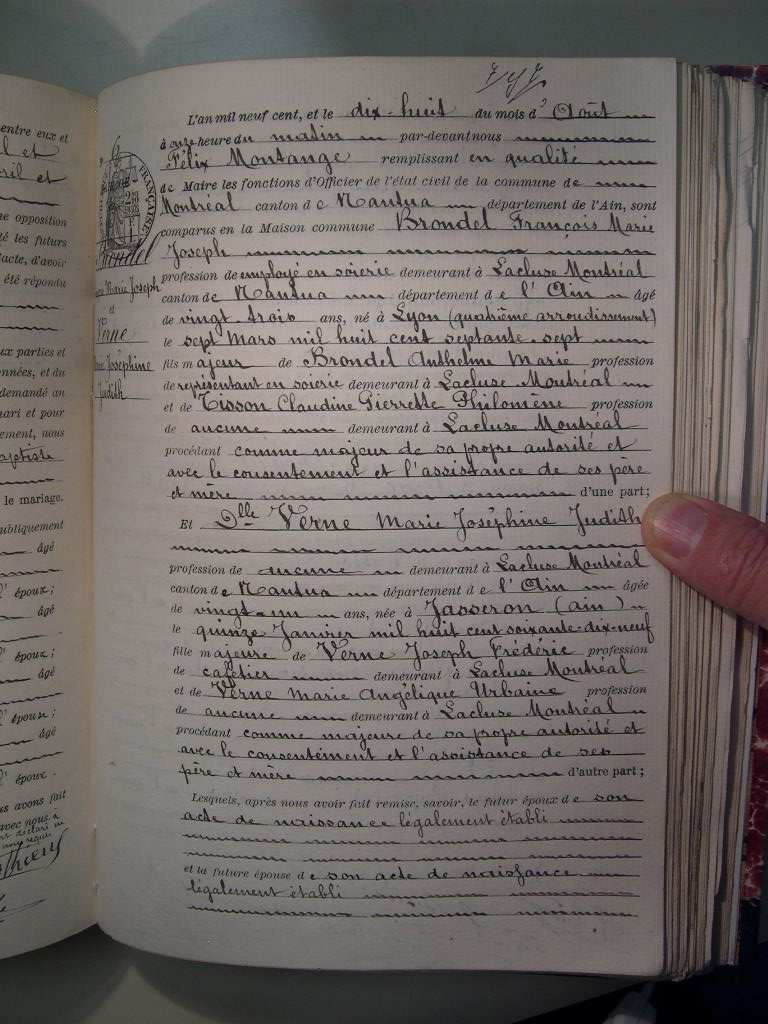 entre eux et
l et
ril et
ne opposition
té les futurs
acte, d'avoir
été répondu
ux parties et
onnées, et du
demandé an
mari et pour
ement, nous
aptiste
le mariage.
ubliquement
âgé
l' époux ;
âgé
l' époux ;
âgé
l' époux ;
âgé
l' époux .
us avons fait
avec nous
L'an mil neuf cent, et le dix-huit du mois d' Août
à onze heure du matin par-devant nous
Félix Montange remplissant en qualité
de Maire les fonctions d'Officier de l'état civil de la commune de
Montréal canton de Nantua département de l'Ain, sont
comparus en la Maison commune Brondel François Marie
Joseph
profession de employé en soierie demeurant à Lacluse Montréal
canton de Nantua département de l'Ain âgé
de vingt-trois ans, né à Lyon (quatrième arroudissement)
le sept Mars mil huit cent septante-sept
fils majeur de Brondel Anthelme Marie profession
de représentant en soierie demeurant à Lacluse Montréal
et de Tisson Claudine Pierrette Philomène profession
de aucune demeurant à Lacluse Montréal
procédant comme majeur de sa propre autorité et
avec le consentement et l'assistance de ses père
et mère d'une part ;
Et Dlle Verne Marie Joséphine Judith
profession de aucune demeurant à Lacluse Montréal
canton de Nantua département de l'Ain âgée
de vingt-un ans, née à Jasseron (ain)
le quinze Janvier mil huit cent soixante-dix-neuf
fille majeure de Verne Joseph Frédéric profession
de cafetier demeurant à Lacluse Montréal
et de Verne Marie Angélique Urbaine profession
de aucune demeurant à Lacluse Montréal
procédant comme majeure de sa propre autorité et
avec le consentement et l'assistance de ses
père et mère d'autre part ;
Lesquels, après nous avoir fait remise, savoir, le futur époux de son
acte de naissance légalement établi
et la future épouse de son acte de naissance
légalement établi
FRANÇAISE
Brondel
Marie Joseph
et
Verne
Joséphine
Judith